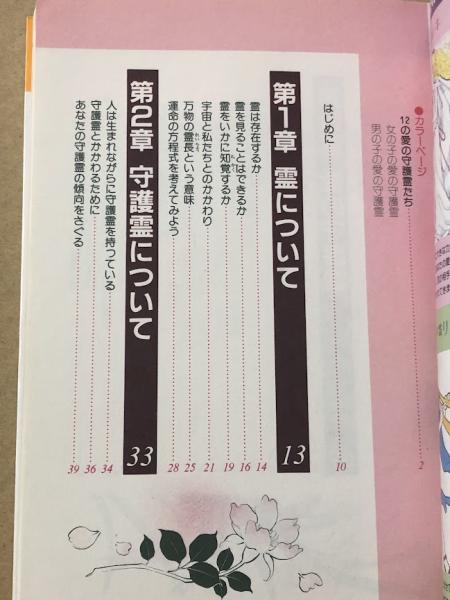 ●カラーページ
12の愛の守護霊たち 2
女の子の愛の守護霊
男の子の愛の守護霊
はじめに 10
第1章 霊について 13
霊は存在するか 14
霊を見ることはできるか 16
霊をいかに知覚するか 19
宇宙と私たちとのかかわり 21
万物の霊長という意味 25
運命の方程式を考えてみよう 28
第2章 守護霊について 33
人は生まれながらに守護霊を持つている 34
守護霊とかかわるために 36
あなたの守護霊の傾向をさぐる 39